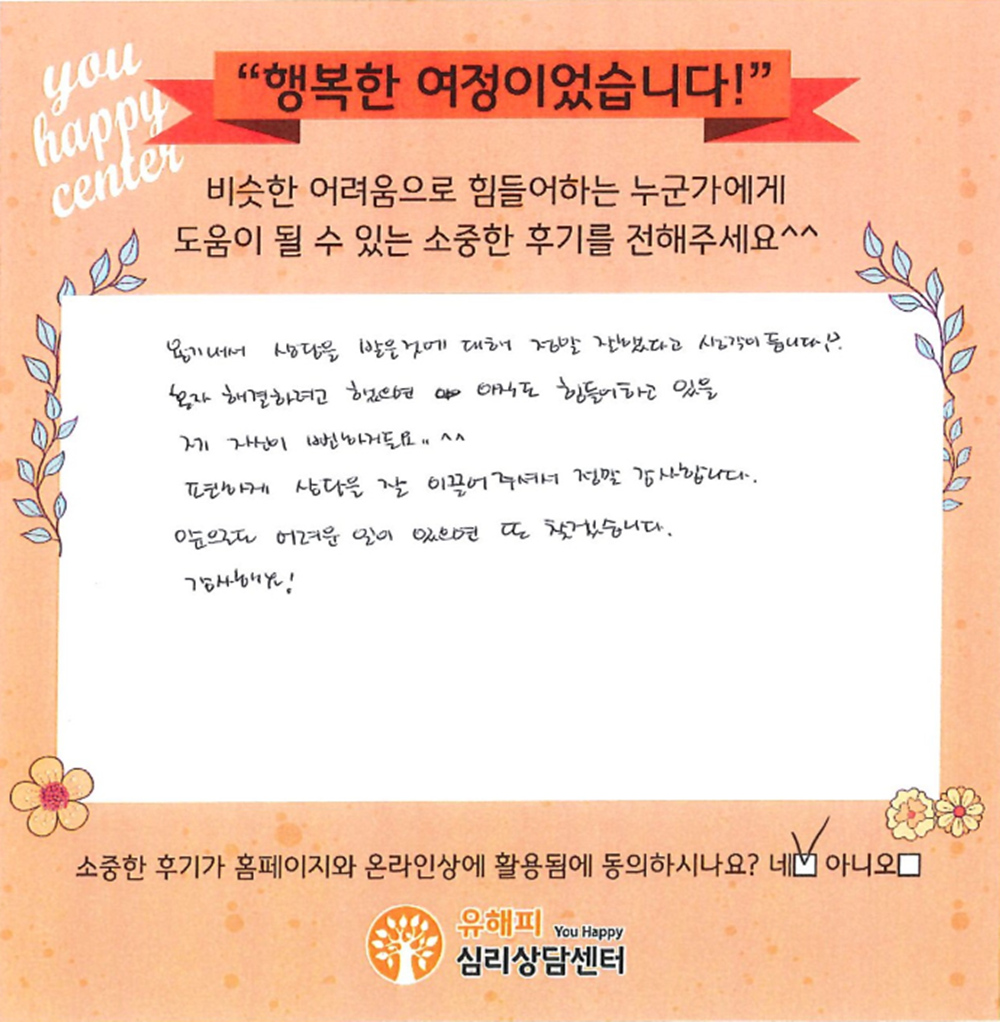 you
happy
center
“행복한 여정이었습니다!”
비슷한 어려움으로 힘들어하는 누군가에게
도움이 될 수 있는 소중한 후기를 전해주세요^^
용기내서 상담을 받은것에 대해 정말 잘했다고 생각이 듭니다!
혼자 해결하려고 했으면 아직도 힘들어하고 있을
제 자신이 뻔하거든요.. ^^
편하게 상담을 잘 이끌어주셔서 정말 감사합니다.
앞으로도 어려운 일이 있으면 또 찾겠습니다.
감사해요!
소중한 후기가 홈페이지와 온라인상에 활용됨에 동의하시나요? 네 아니오
유해피 You Happy
심리상담센터